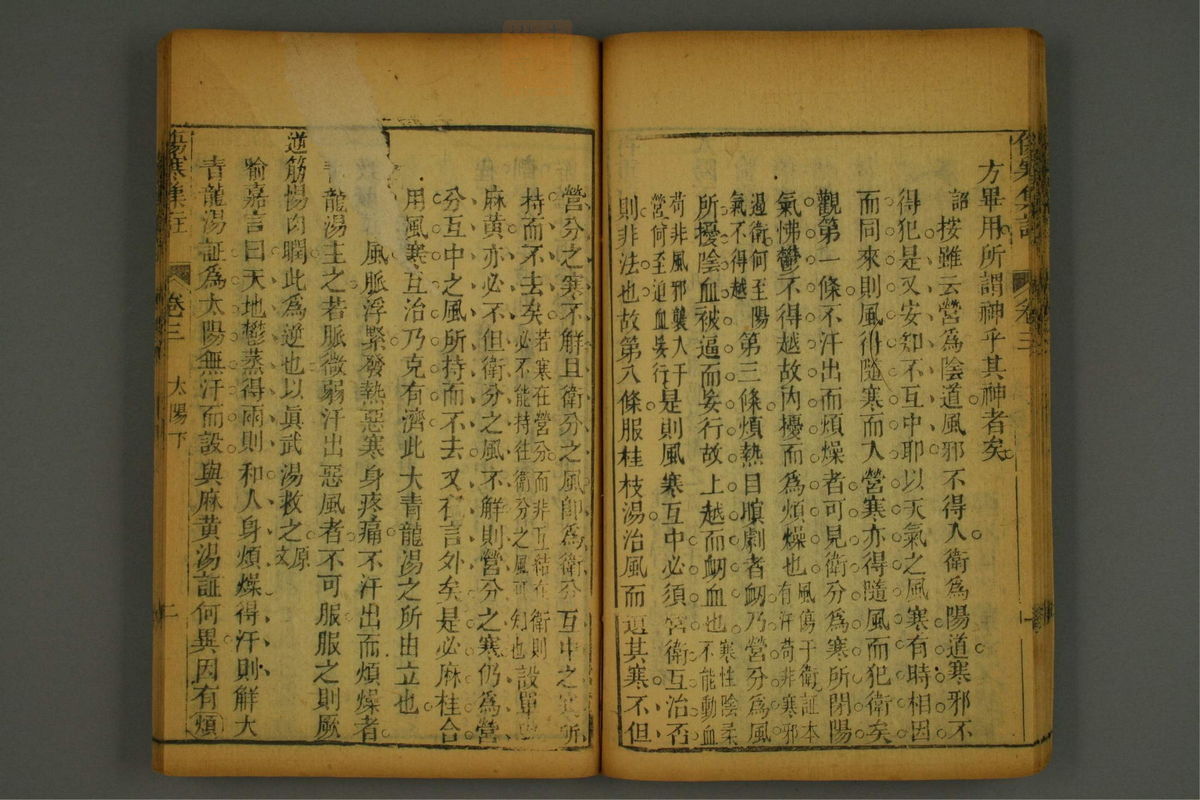 方畢用所謂神乎其神者矣
詔按雖云營為陰道風邪不得入衛為陽道寒邪不
得犯是又安知不互中耶以天氣之風寒有時相因
而同來則風得隨寒而入營寒亦得隨風而犯衛矣
觀第一條不汗出而煩燥者可見衛分為寒所閉陽
氣怫鬱不得越故內擾而為煩燥也風傷于衛証本有汗苟非寒邪
過衛何至陽氣不得越第三條煩熱目瞑劇者衂乃營分為風
所擾陰血被逼而妄行故上越而衂血也寒性陰柔不能動血
苟非風邪襲入于營何至迫血妄行是則風寒互中必須營衛互治否
則非法也故第八條服桂枝湯治風而遺其寒不但
營分之寒不解且衛分之風即為衛分互中之寒所
持而不去矣若寒在營分而非互結在衛則必不能持住衛分之風可知也設單
麻黃亦必不但衛分之風不解則營分之寒仍為營
分互中之風所持而不去又在言外矣是必麻桂合
用風寒互治乃克有濟此大青龍湯之所由立也
風脈浮緊發熱惡寒身疼痛不汗出而煩燥者
青龍湯主之若脈微弱汗出惡風者不可服服之則厥
逆筋惕肉瞤此為逆也以眞武湯救之原文
喻嘉言曰天地鬱蒸得雨則和人身煩燥得汗則解大
青龍湯証為太陽無汗而設與麻黃湯証何異因有煩
傷寒集註
卷三
太陽下
二
傷寒集註
卷三